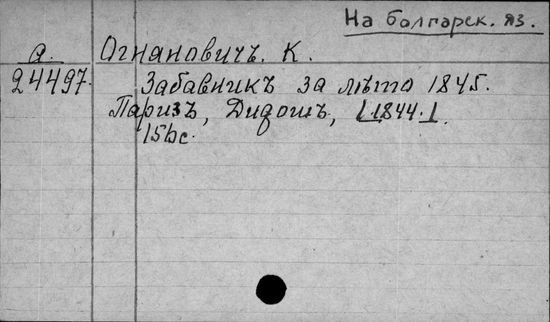 На болгарск. яз.
а. Огнановичъ. К.
24497. Забавникъ за лѣто 1845.
Паризъ, Дидотъ, [1844.]
156 с.